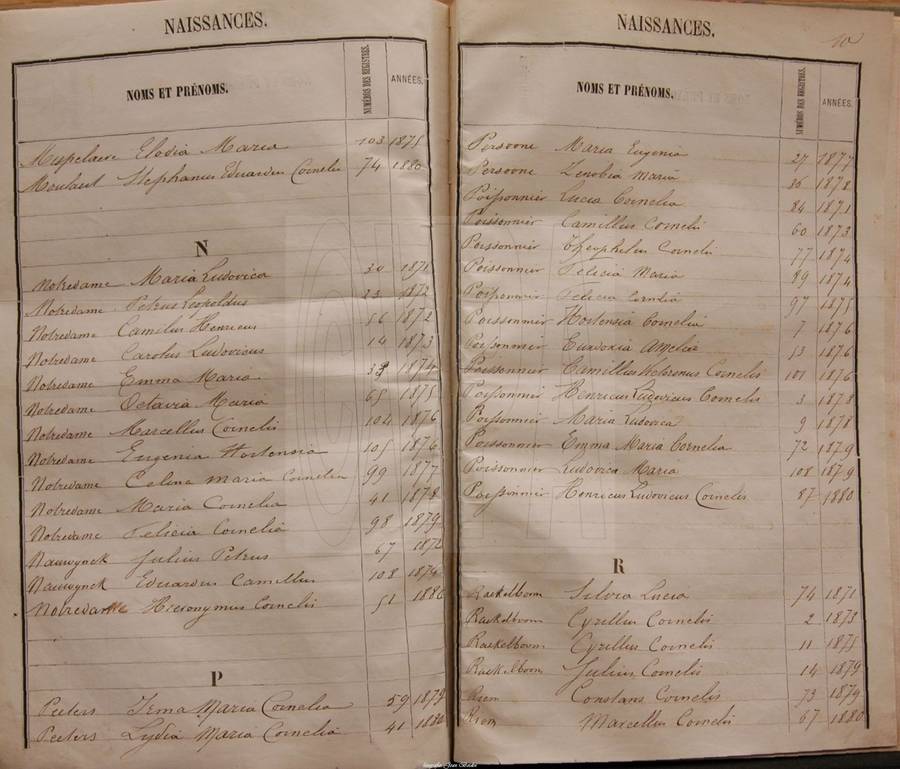 NAISSANCES.
NOMS ET PRÉNOMS. NUMÉROS DES REGISTRES. ANNÉES.
Mispelaere Elodia Maria 103 1875
Moulaert Stephanus Eduardus Cornelis 74 1880
N
Notredame Maria Ludovica 30 1871
Notredame Petrus Leopoldus 23 1872
Notredame Camilus Henricus 56 1872
Notredame Carolus Ludovicus 14 1873
Notredame Emma Maria 1874
Notredame Octavia Maria 65 1875
Notredame Marcellus Cornelis 104 1876
Notredame Eugenia Hortensia 105 1876
Notredame Celina Maria Cornelia 99 1877
Notredame Maria Cornelia 41 1878
Notredame Felicia Cornelia 98 1879
Nauwynck Julius Petrus 67 1872
Nauwynck Eduardus Camillus 108 1874
Notredame Hieronymus Cornelis 51 1880
P
Peeters Irma Maria Cornelia 59 1879
Peeters Lydia Maria Cornelia 41 1880
NAISSANCES.
10
NOMS ET PRÉNOMS. NUMÉROS DES REGISTRES. ANNÉES.
Persoone Maria Eugenia 27 1877
Persoone Zenobia Maria 36 1878
Poissonnier Lucia Cornelia 84 1871
Poissonnier Camillus Cornelis 60 1873
Poissonnier Theophilus Cornelis 77 1874
Poissonnier Felicia Maria 89 1874
Poissonnier Felicia 97 1875
Poissonnier Hortensia Cornelia 7 1876
Poissonnier Eudoxia Angelia 53 1876
Poissonnier Camillus Cornelis 101 1876
Poissonnier Henricus Ludovicus Cornelis 3 1878
Poissonnier Maria Ludovica 9 1878
Poissonnier Emma Maria Cornelia 72 1879
Poissonnier Ludovica Maria 108 1879
Poissonnier Henricus Ludovicus Cornelis 87 1880
R
Raekelboom Silvia Lucia 74 1871
Raekelboom Cyrillus Cornelis 2 1873
Raekelboom Cyrillus Cornelis 11 1875
Raekelboom Julius Cornelis 14 1879
Constans Cornelis 73 1879
Marcellus Cornelis 67 1880